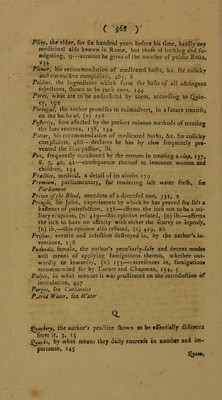 ( 568 )
Pliny, the elder, for six hundred years before his time, hardly any
medicinal aids known in Rome, but those of bathing and fu-
migating, 9—account he gives of the number of public Baths,
234
Plumer, his recommendation of medicated baths, &c. for colicky
and convulsive complaints, 465, 6
Plumbos, the ingredients which form the basis of all astringent
injections, shown to be rank ones, 144
Pores, what are to be understood by them, according to Quin-
cy, 198
Portugal, the author promises to animadvert, in a future treatise,
on the baths of, (n) 218
Posterity, how affected by the present ruinous methods of treating
the lues venerea, 138, 144
Potter, his recommendation of medicated baths, &c. for colicky
complaints, 466—declares he has by them frequently pre-
vented the iliac passion, ib.
Pox, frequently occasioned by the errours in treating a clap, 137,
8, 9, 40, 41—consequence thereof to innocent women and
children, 144
Practice, medical, a detail of its abuses 179
Premium, parliamentary, for rendering salt water fresh, see
Parliament
Priest of the Blood, anecdote of a deceased one, 332, 2
Pringle, Sir John, experiments by which he has proved sea salt a
hastener of putrefaction, 258—affirms the itch not to be a mi-
liary eruption, (n) 419—this opinion refuted, (n) ib.—affirms
the itch to have no affinity with either the scurvy or leprosy,
(n) ib.—this opinion also refuted, (n) 419, 20
Prussia, errours and infection destroyed in, by the author's in-
ventions, 138
Pudenda, female, the author's peculiarly-safe and decent modes
and means of applying fumigations thereto, whether out-
wardly or inwardly, (n) 153—incerenses in, fumigations
recommended for by Turner and Chapman, 154, 5
Pultney, in what manner it was practised on the introduction of
inoculation, 427
Purges, see Cathartics
Putrid Water, see Water
Q
Quackery, the author's practice shown to be essentially different
from it, 3, 15
Quacks, by what means they daily encrease in number and im-
portance, 145
Queen,